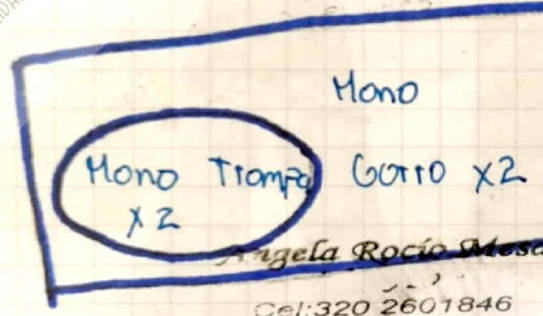 Mono
Mono Trompo Gorro x2
x2
Angela Rocío Mesa
Cel:320 2601846